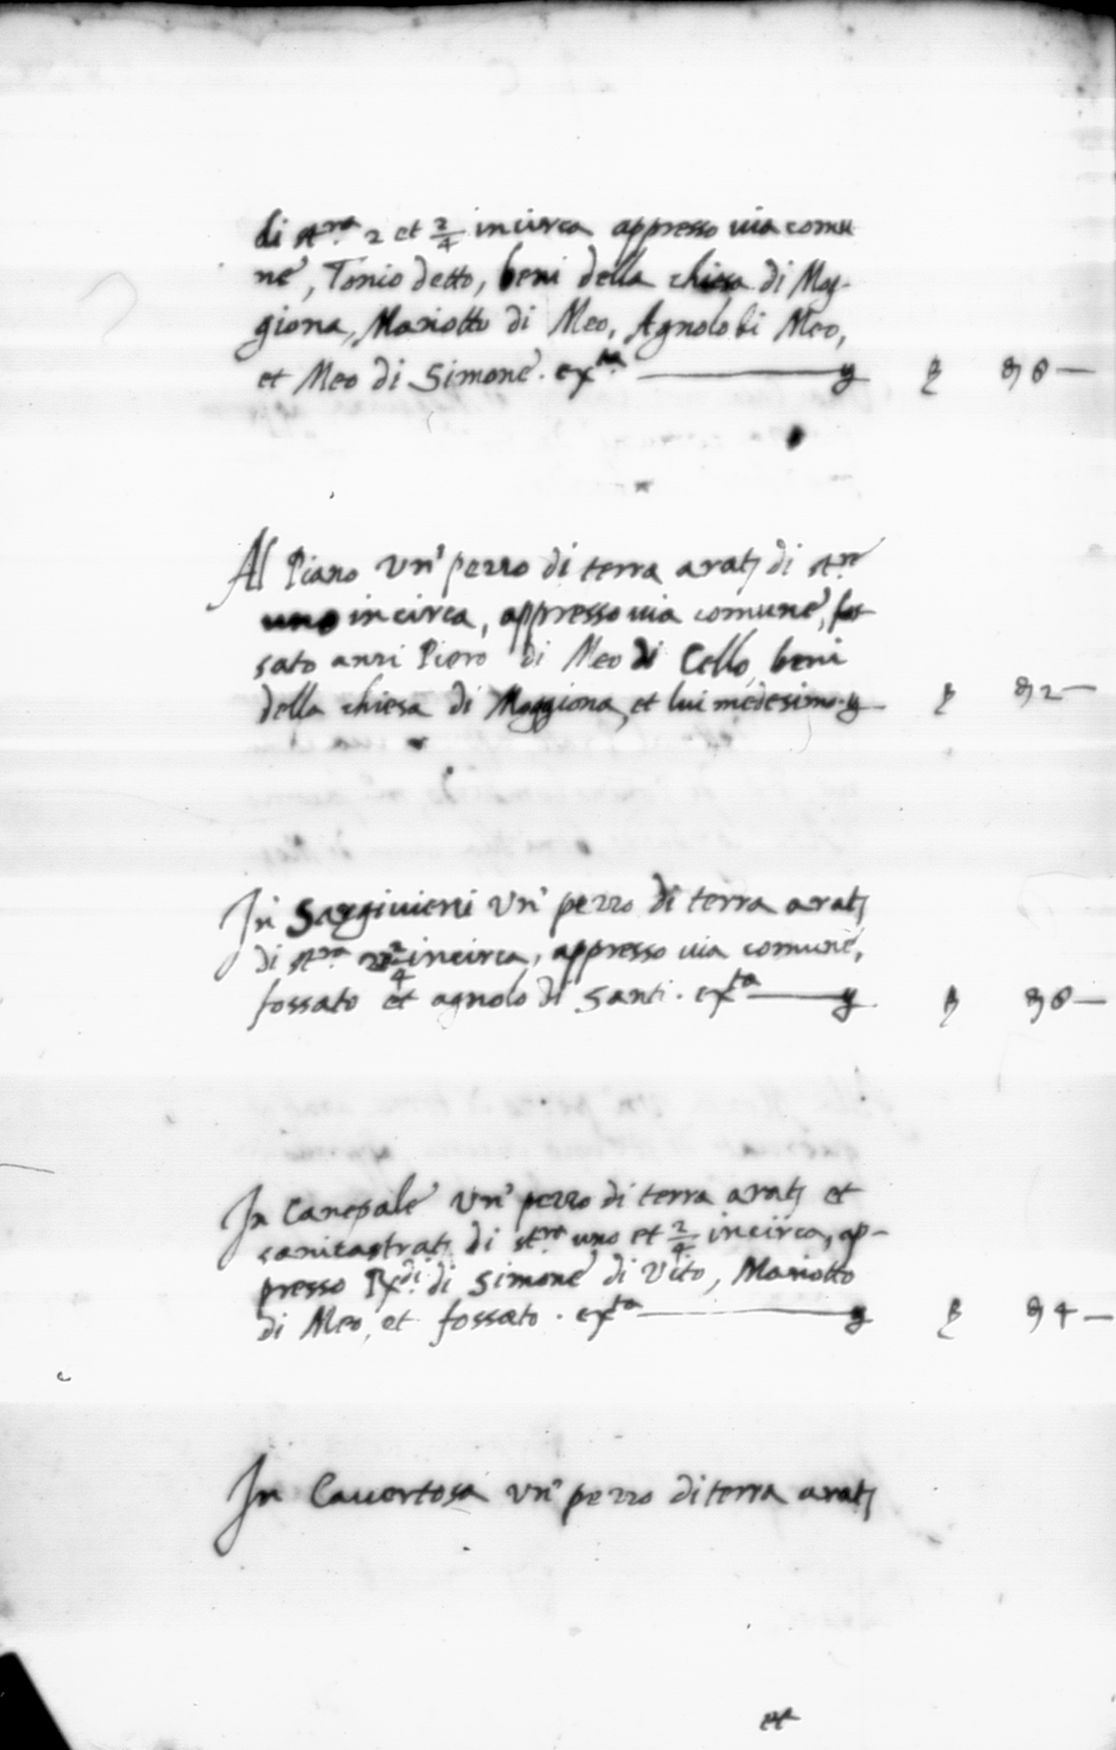 di st.ra 2 et 2/4 incirca appresso uia comu
ne, Tonio detto, beni della chiesa di Mog-
giona, Mariotto di Meo, Agnolo di Meo,
et Meo di Simone. ex.ta
Al Piano un' pezzo di terra arat. di st.ro
uno incirca, appresso uia comune, fos-
sato anzi Piero di Meo di Cello, beni
della chiesa di Moggiona, et lui medesimo. 2
In un' pezzo di terra arat.
di st.ra 2/4 incirca, appresso uia comune,
fossato et agnolo di Santi. ex.ta
In Canepale un' pezzo di terra arat. et
di st.ro uno et 2/4 incirca, ap-
presso di Simone di Vito, Mariotto
di Meo, et fossato. ex.ta 4
In Cauertosa un' pezzo di terra arat.
et